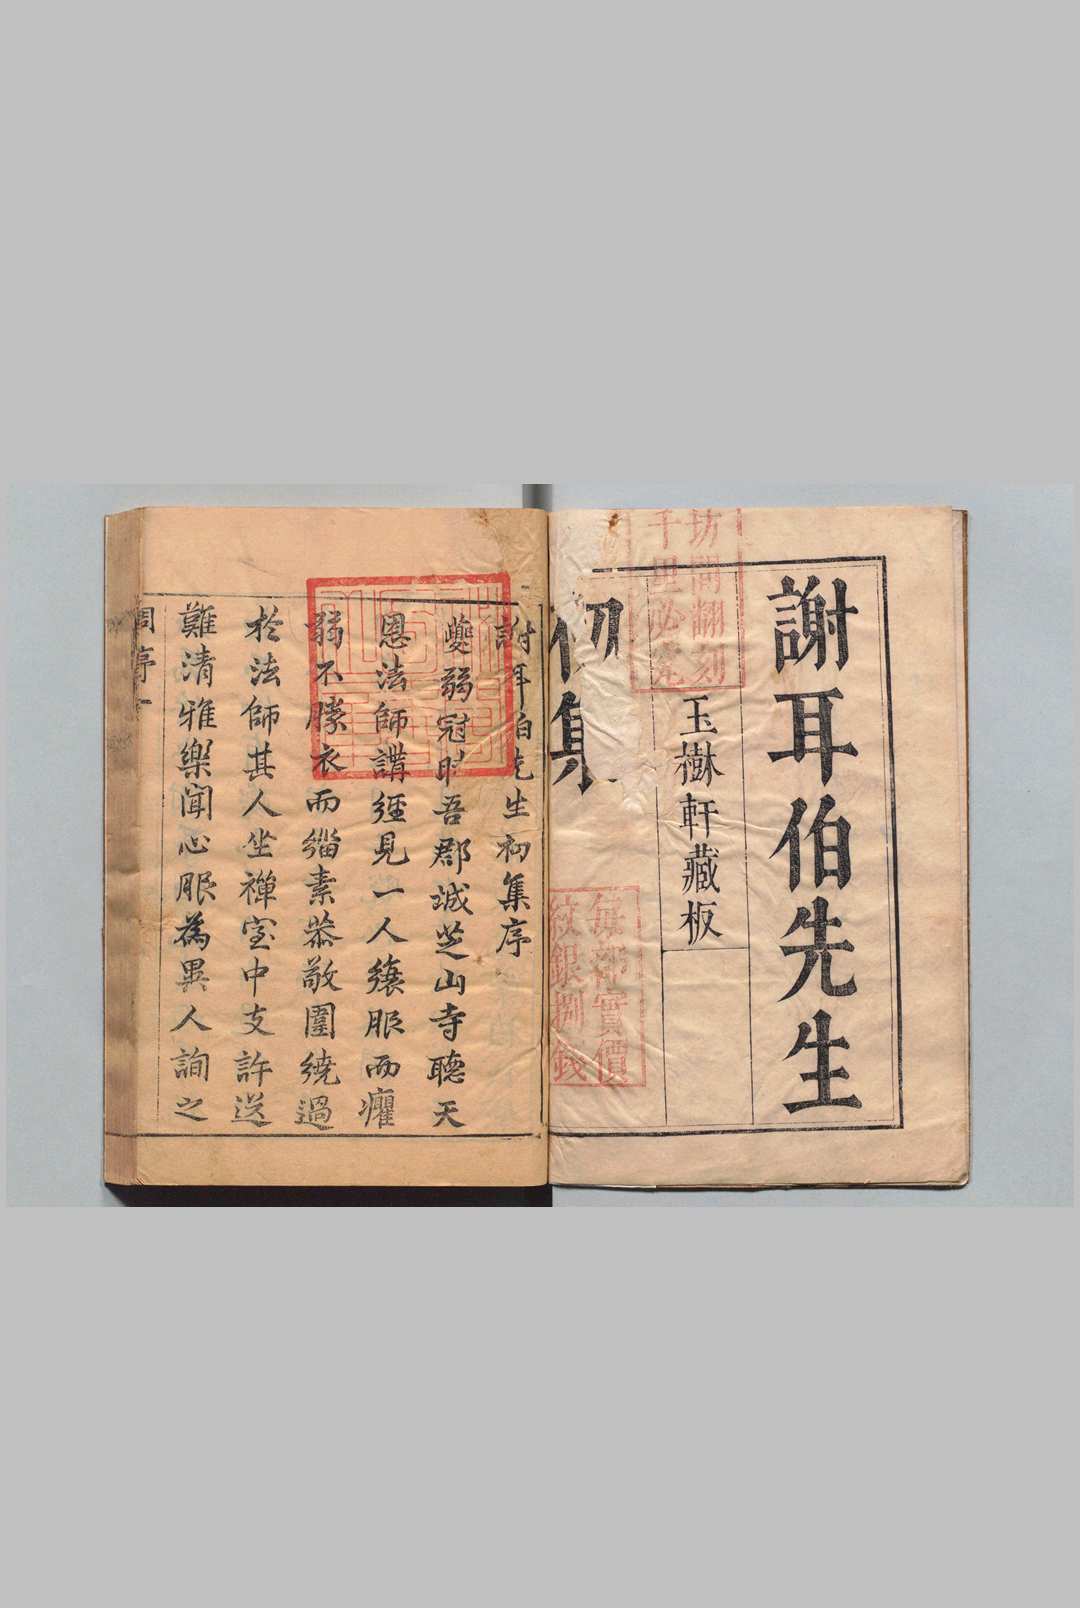 謝耳伯先生
坊間翻刻
千里必究
玉樹軒藏板
初集
每部實價
紋銀捌錢
謝耳伯先生初集序
夔弱冠時吾郡誠芝山寺聽天
恩法師講經見一人穰服而癯
弱不勝衣而緇素恭敬圍繞過
於法師其人坐禪室中支許送
難清雅樂聞心服為異人詢之